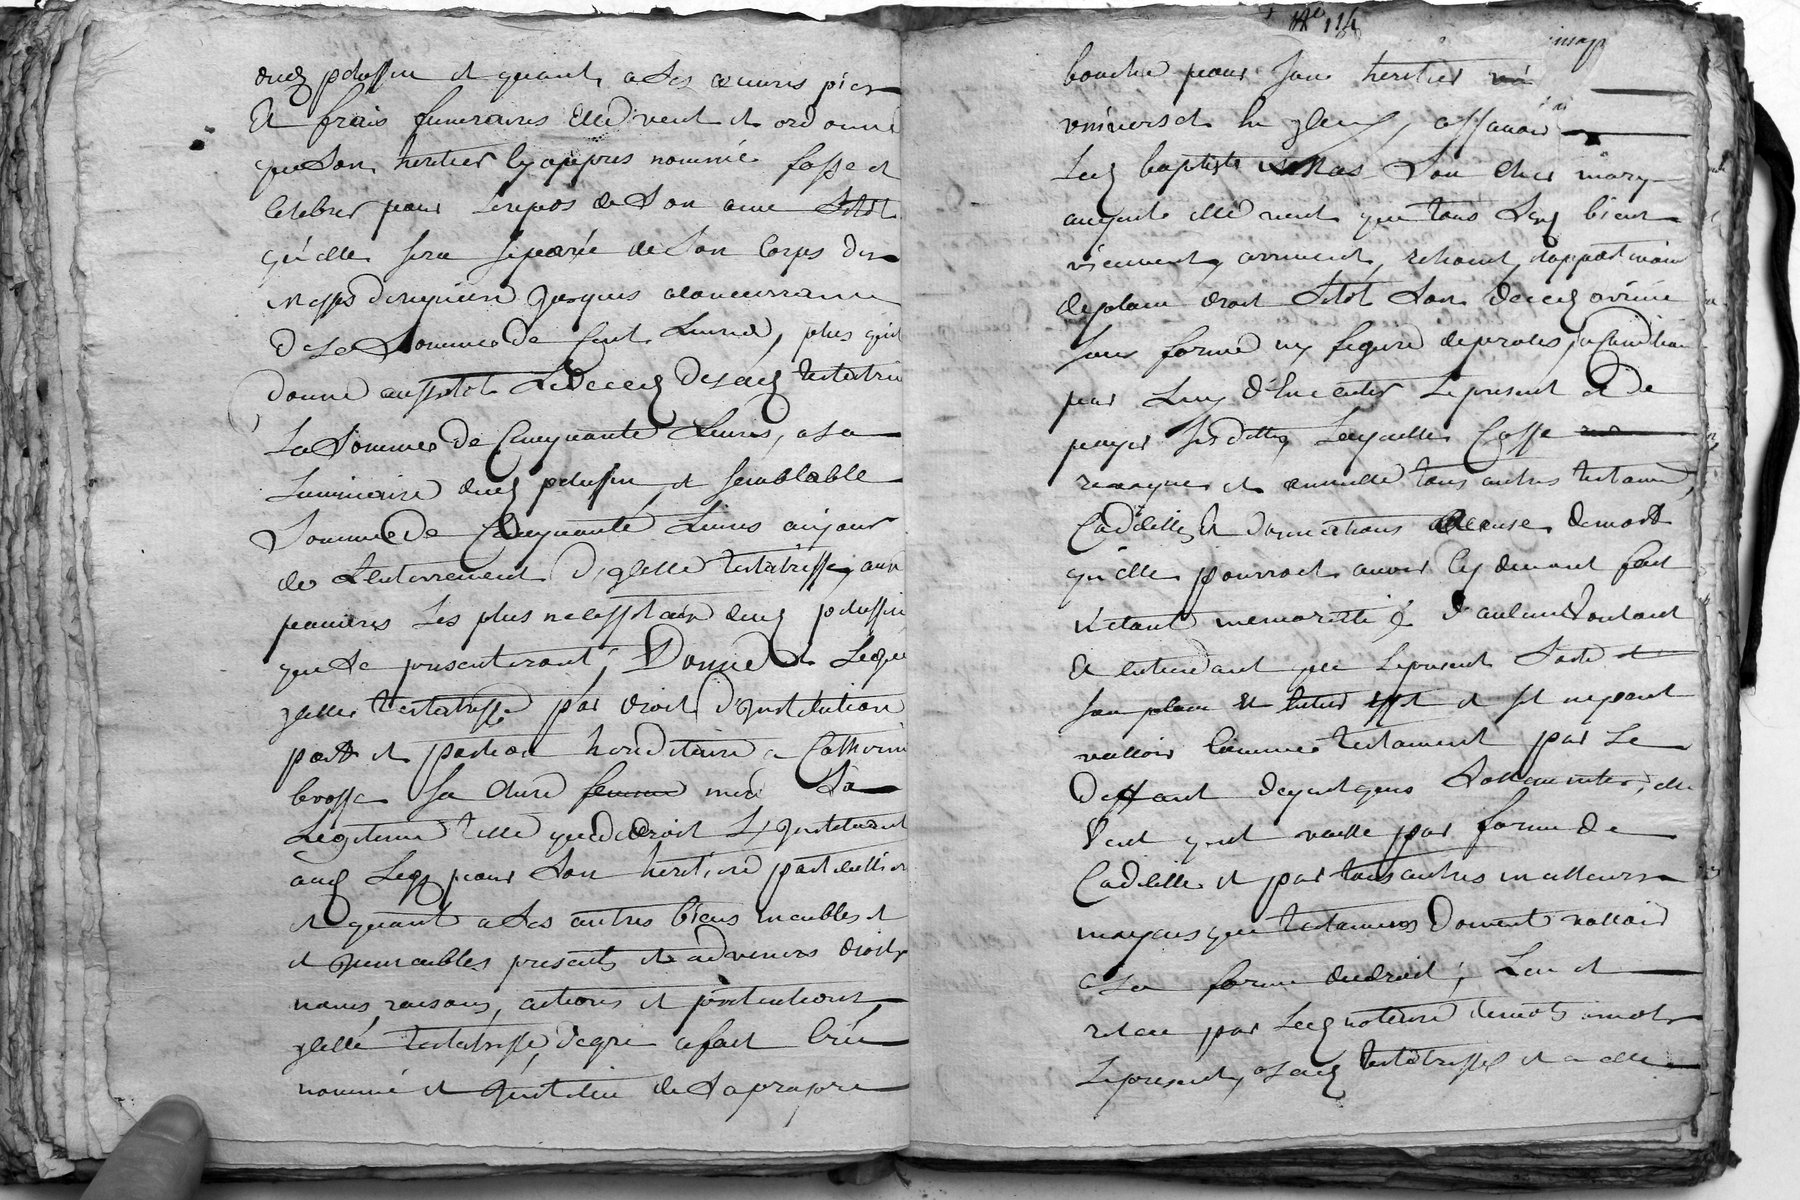 dud pelussin et quant a ses œuvres pies
Et frais funeraires Elle veut et ordonne
que son heritier cy appres nommé fasse
celebrer pour le repos de son ame sitot
qu'elle sera separée de son corps des
messes de requiem jusques a concurrance
de la somme de Cent Livres, plus quil
donne aussitot Le deced de lad testatrice
La somme de Cinquante Livres, a la
Luminaire dud pelussin et semblable
somme de Cinquante Livres au jour
de L'enterrement d'icelle testatrisse, aux
pauvres Les plus necessitaux dud pelussin
que se presenteront; Donne et Legue
icelle testatrisse par droit d'institution
part et portion hereditaire a Catherine
brosse sa chere femme mere Sa
Legitime telle que de droit L'instituant
aud Legs pour son heritiere particulliere
et quant a ses autres biens meubles et
et immeubles presents et advenirs droits
noms raisons, actions et pretentions
icelle testatrisse, de gré a fait créé
nommé et institué de sa propre
bouche pour son heritier
universel et general, assavoir
Led baptiste son cher mary
auquel elle veut que tous ses biens
viennent, arrivent, et appartiennent
de plain droit sitot son deced arrivé
sans forme ny figure de proces, a condition
par Luy d'executer Le present et de
payer ses dettes, Laquelle Casse
revoque et annulle tous autres testaments,
Codicille et donnations a Cause de mort
qu'elle pourroit avoir cy devant fait
n'etant memorative d'aucun voulant
et entendant que le present sorte
son plain et entier effet et sil ne peut
valloir comme testament par Le
deffaut de quelques sollemnites, elle
veut quil vaille par forme de
Codicille et par tous autres meilleurs
moyens que testaments doivent valloir
a la forme du droit; Leu et
releu par Led notaire de mots a mots
Le present, a lad testatrisse et a elle